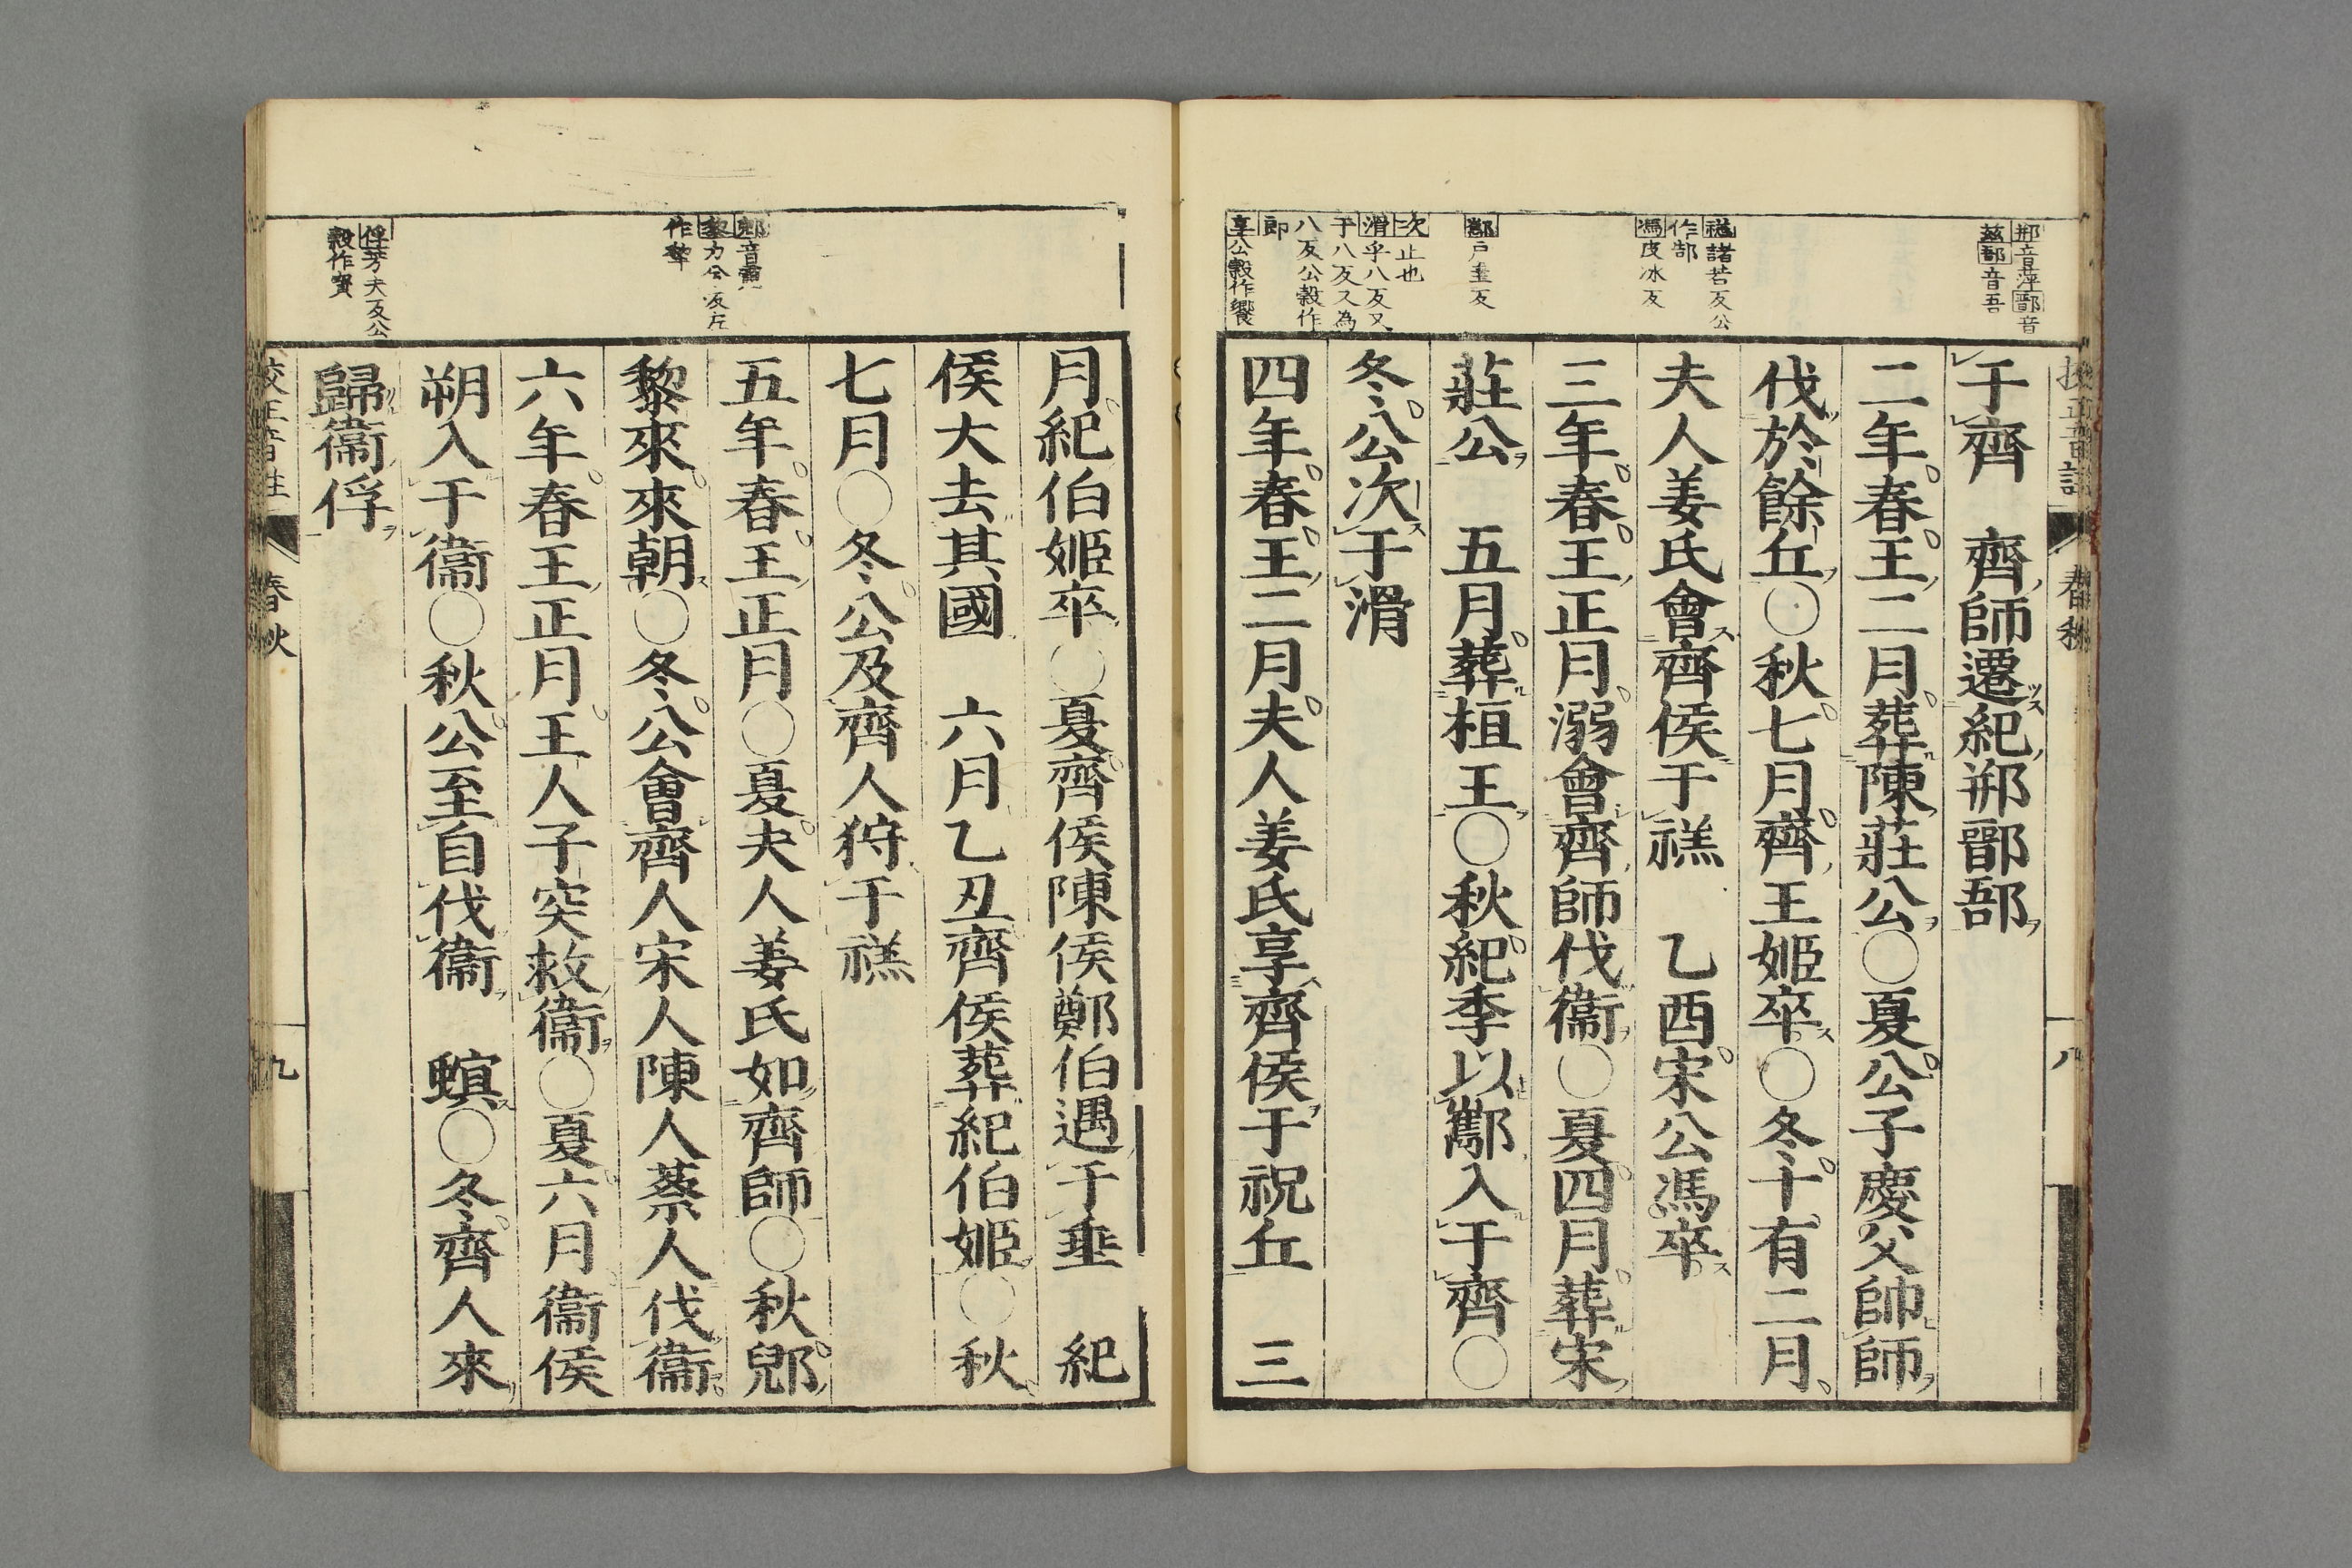 邢音瓶郚音
玆郚音吾
禚諸若反公
作郜
馮皮冰反
酅戶圭反
次止也
滑乎八反又
于八反又為
八反公穀作
郎
享公穀作饗
春秋
八
于齊　齊師遷紀郱鄑郚
二年春王二月葬陳莊公○夏公子慶父帥師
伐於餘丘○秋七月齊王姬卒○冬十有二月
夫人姜氏會齊侯于禚　乙酉宋公馮卒
三年春王正月溺會齊師伐衞○夏四月葬宋
莊公　五月葬桓王○秋紀季以酅入于齊○
冬公次于滑
四年春王二月夫人姜氏享齊侯于祝丘　三
郳音霓
黎力兮反左
作犂
俘芳夫反公
穀作寳
月紀伯姬卒○夏齊侯陳侯鄭伯遇于垂　紀
侯大去其國　六月乙丑齊侯葬紀伯姬○秋
七月○冬公及齊人狩于禚
五年春王正月○夏夫人姜氏如齊師○秋郳
黎來來朝○冬公會齊人宋人陳人蔡人伐衞
六年春王正月王人子突救衞○夏六月衞侯
朔入于衞○秋公至自伐衞　螟○冬齊人來
歸衞俘
校正音註
春秋
九